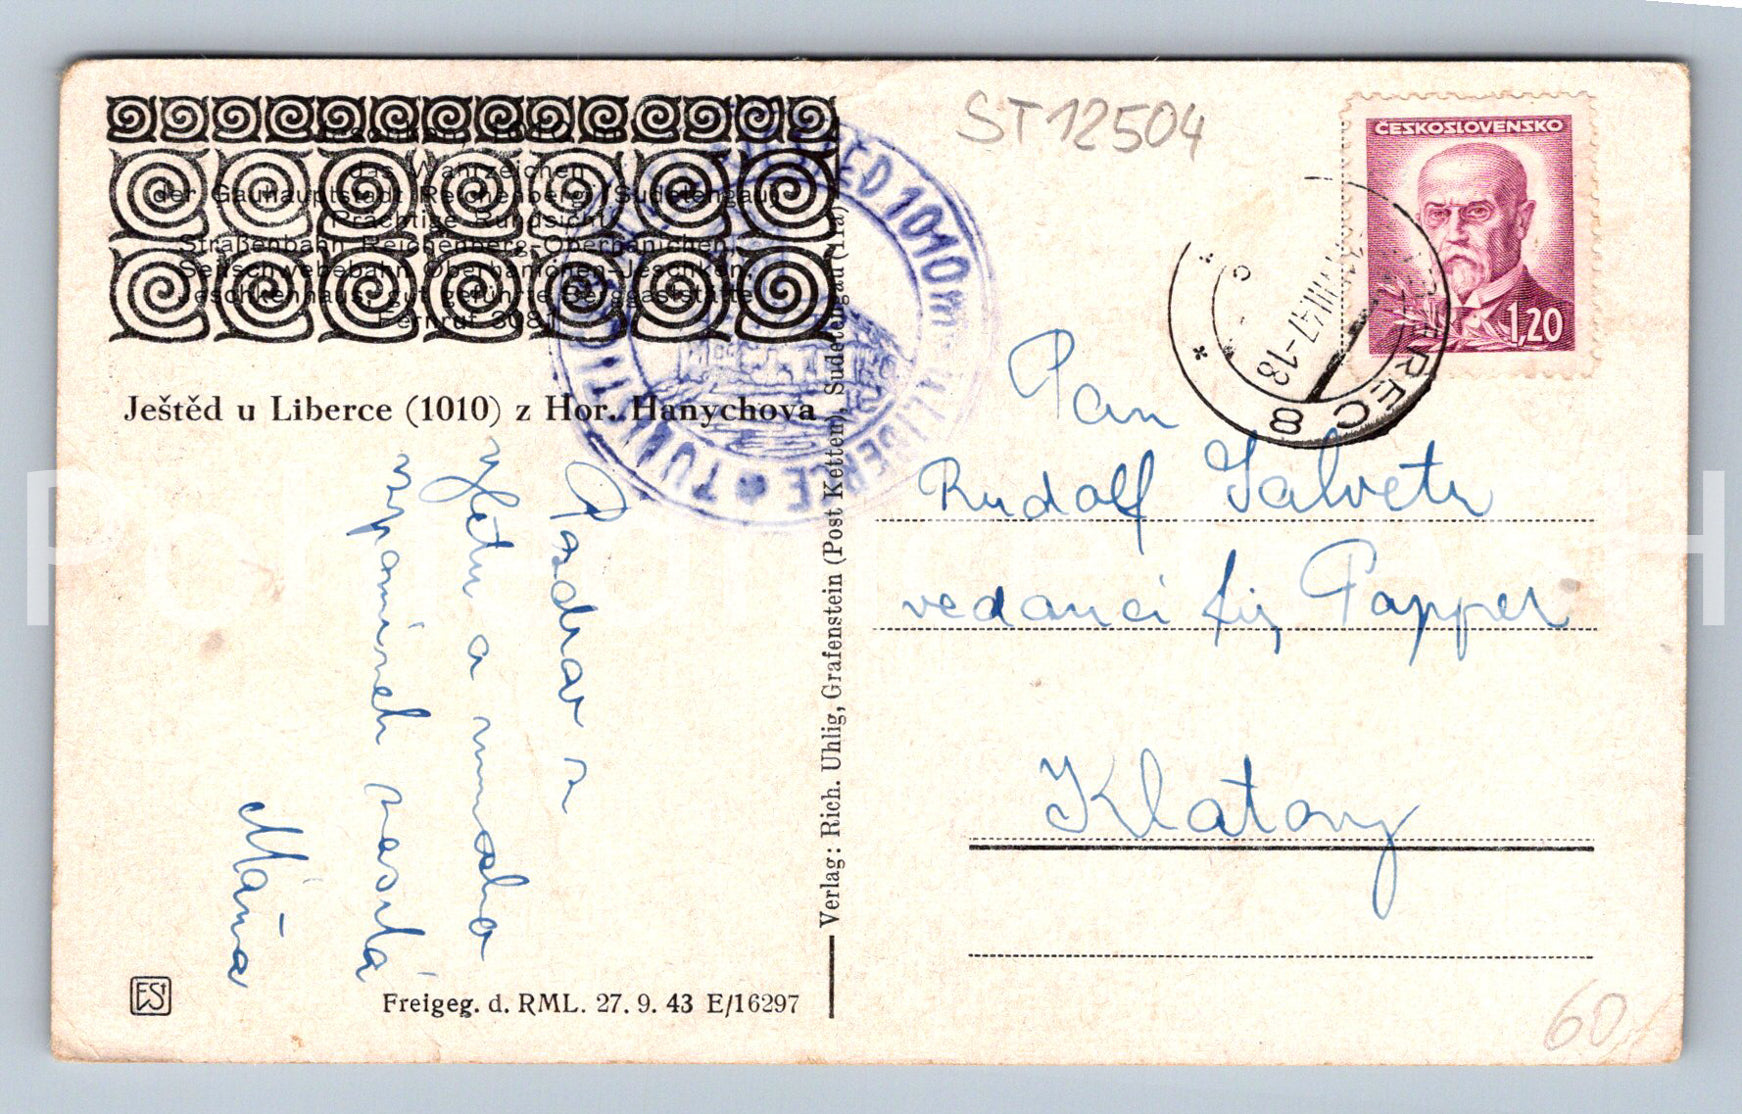 ST 12504
Jeschken, 1010 m
das Wahrzeichen
der Gauhauptstadt Reichenberg (Sudetengau)
Prächtige Rundsicht
Straßenbahn Reichenberg-Oberhanichen,
Seilschwebebahn Oberhanichen-Jeschken.
Jeschkenhaus, gut geführte Berggaststätte
Fernruf 3081
Ještěd u Liberce (1010) z Hor. Hanychova
Pozdrav z
výletu a mnoho
vzpomínek zasílá
Máňa
Freigeg. d. RML. 27. 9. 43 E/16297
Verlag: Rich. Uhlig, Grafenstein (Post Ketten), Sudetengau (11a)
1010m
LIBERCE
ČESKOSLOVENSKO
1,20
VIII.47-18
8
Pan
Rudolf Salvetr
vedoucí fy Papper
Klatovy
60,-